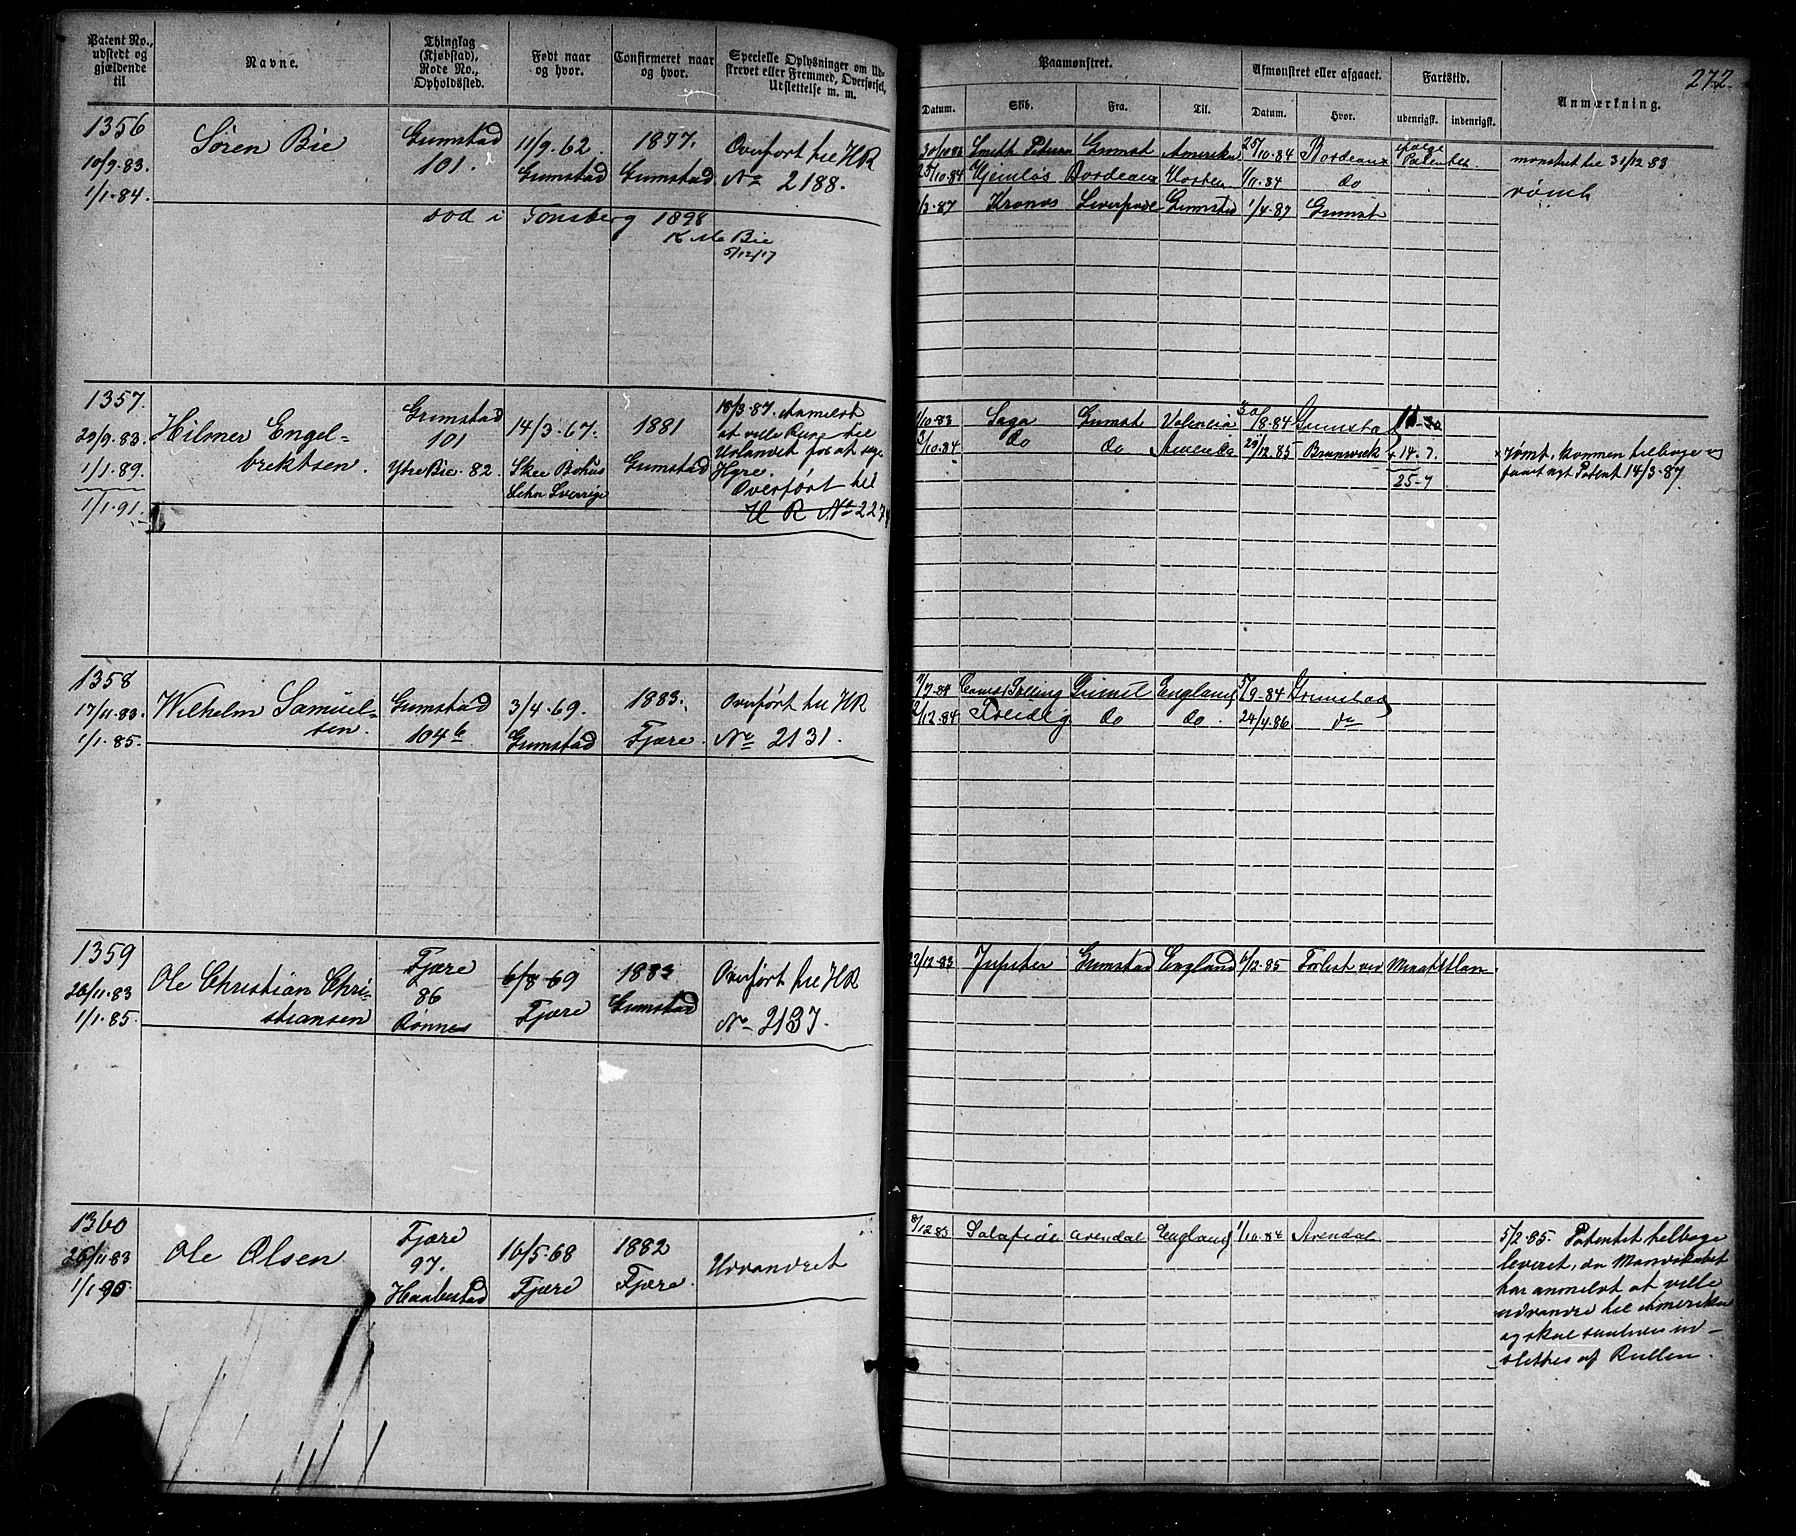 Patent No., udstedt og gjældende til
Navne.
Thinglag (Kjøbstad), Rode No., Opholdssted.
Født naar og hvor.
Confirmeret naar og hvor.
Specielle Oplysninger om Udskrevet eller Fremmed, Overførsel, Udslettelse m. m.
Paamønstret.
Datum.
Skib.
Fra.
Til.
Afmønstret eller afgaaet.
Datum.
Hvor.
Fartstid.
udenrigsk.
indenrigsk.
Anmærkning.
272.
1356
10/9.83.
1/1.84.
Søren Bie
Grimstad
101.
11/9.62.
Grimstad
1877.
Grimstad
Overført til HR
No 2188.
død i Tønsberg 1898
K M Bie
5/12/17
30/10 83 Smith Petersen Grimst Amerika 25/10.84 Bordeaux
25/10.84 Hjemløs Bordeaux 1/11.84 do
/3.87 Kronos Liverpool Grimstad 1/4.87 Grimst
mønstret til 31/12 83
rømt
1357.
29/9.83.
1/1.89.
1/1.91.
Hilmer Engel-
brektsen.
Grimstad
101
Ytre Bie. 82.
14/3.67.
Skee Bohus
Lehn Sverrige
1881
Grimstad
18/3-87. Anmeldt
at ville reise til
Udlandet for at søge
Hyre.
Overført til
H R No 227
1/10.83 Saga Grimst Valencia 30/8-84 Grimstad
2/10.84 do do 29/12.85 Brunswick + 14.7
25-7
x rømt, kommen tilbage og
faaet nyt Patent 14/3-87.
1358
17/11.83.
1/1.85.
Wilhelm Samuel-
sen.
Grimstad
104b
3/4.69.
Grimstad
1883.
Fjære.
Overført til HR
No 2131.
1/7-84 Grimst England 5/9-84 Grimstad
2/12.84 Freidig do do. 24/4.86 do
1359
28/11.83
1/1.85.
Ole Christian Chri-
stiansen
Fjære
86
Rønnes
6/8.69
Fjære
1883
Grimstad
Overført til HR
No 2137.
22/12.83 Jupiter Grimstad England 6/12.85 Forlist ved
1360
26/11.83
1/1.90.
Ole Olsen
Fjære
97.
Haabestad
16/5.68
Fjære
1882
Fjære.
Udvandret
8/12.83 Arendal England 1/10.84 Arendal
5/2.85. Patentet tilbage
leveret, da Mandskabet
har anmeldt at ville
udvandre til Amerika
og skal saaledes ud-
slettes af Rullen.